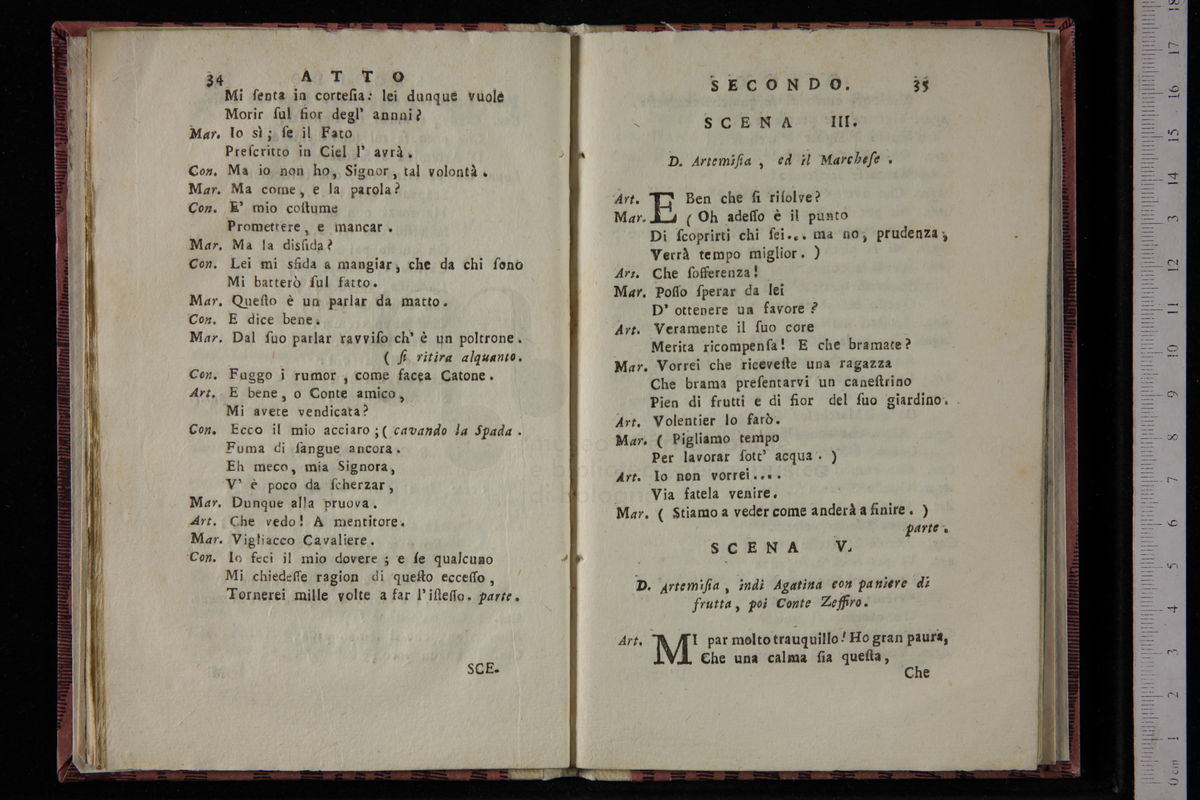 34 ATTO
Mi ſenta in corteſia: lei dunque vuole
Morir ſul fior degl' annni?
Mar. Io sì; ſe il Fato
Preſcritto in Ciel l' avrà.
Con. Ma io non ho, Signor, tal volontà.
Mar. Ma come, e la parola?
Con. E' mio coſtume
Promettere, e mancar.
Mar. Ma la disfida?
Con. Lei mi sfida a mangiar, che da chi ſono
Mi batterò ſul fatto.
Mar. Queſto è un parlar da matto.
Con. E dice bene.
Mar. Dal ſuo parlar ravviſo ch' è un poltrone.
( ſi ritira alquanto.
Con. Fuggo i rumor, come facea Catone.
Art. E bene, o Conte amico,
Mi avete vendicata?
Con. Ecco il mio acciaro; ( cavando la Spada.
Fuma di ſangue ancora.
Eh meco, mia Signora,
V' è poco da ſcherzar,
Mar. Dunque alla pruova.
Art. Che vedo! A mentitore.
Mar. Vigliacco Cavaliere.
Con. Io feci il mio dovere; e ſe qualcuno
Mi chiedeſſe ragion di queſto ecceſſo,
Tornerei mille volte a far l'iſteſſo. parte.
SCE-
SECONDO. 35
SCENA III.
D. Artemiſia, ed il Marcheſe.
Art. E Ben che ſi riſolve?
Mar. ( Oh adeſſo è il punto
Di ſcoprirti chi ſei... ma no, prudenza,
Verrà tempo miglior. )
Art. Che ſofferenza!
Mar. Poſſo ſperar da lei
D' ottenere un favore?
Art. Veramente il ſuo core
Merita ricompenſa! E che bramate?
Mar. Vorrei che riceveſte una ragazza
Che brama preſentarvi un caneſtrino
Pien di frutti e di fior del ſuo giardino.
Art. Volentier lo farò.
Mar. ( Pigliamo tempo
Per lavorar ſott' acqua. )
Art. Io non vorrei....
Via fatela venire.
Mar. ( Stiamo a veder come anderà a finire. )
parte.
SCENA V.
D. Artemiſia, indi Agatina con paniere di
frutta, poi Conte Zeffiro.
Art. MI par molto trauquillo! Ho gran paura,
Che una calma ſia queſta,
Che